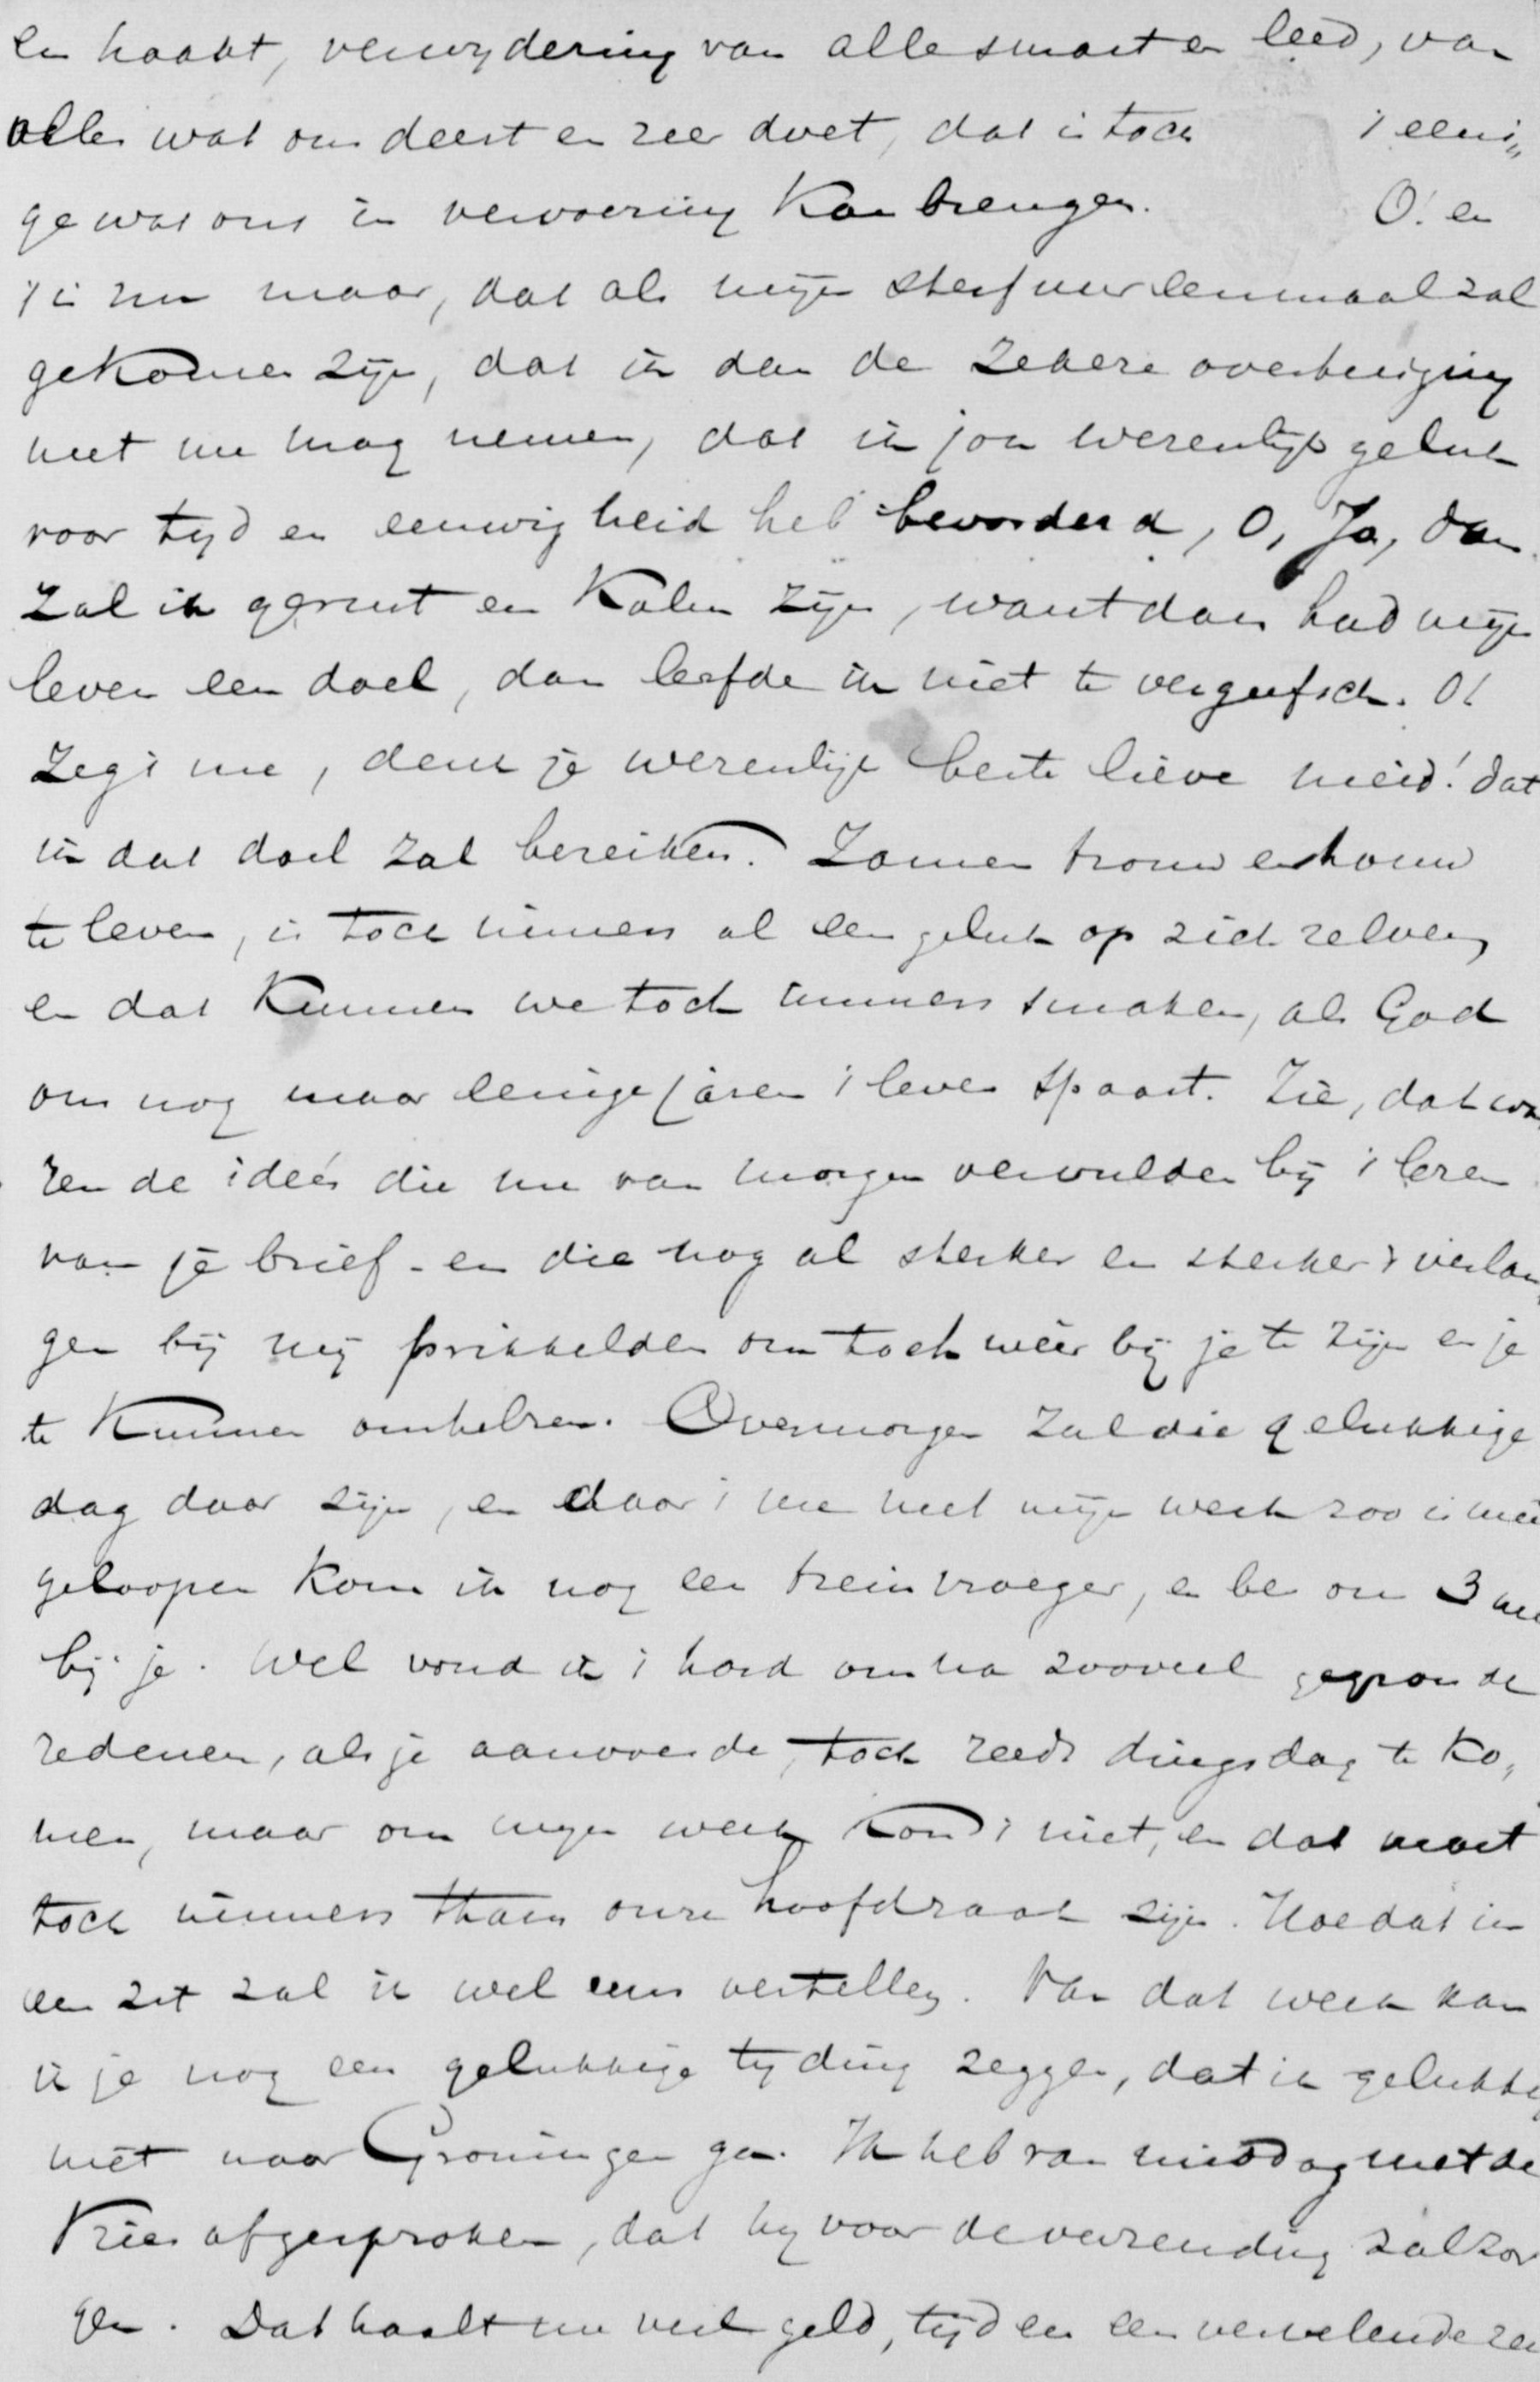 en haakt, verwydering van alle smart en leed, van
alles wat ons deert en zeer doet, dat is toch 't eeni„
ge wat ons in vervoering kan brengen. O! en
't is me maar, dat als mijn sterfuur eenmaal zal
gekomen zijn, dat ik dan de zekere overtuiging
met me mag nemen, dat ik jou wezenlijk geluk
voor tyd en eeuwigheid heb bevorderd, O, Ja, dan
zal ik gerust en kalm zijn, want dan had mijn
leven een doel, dan leefde ik niet te vergeefsch. O!
Zeg 't me, denk je wezenlijk beste lieve meid! dat
ik dat doel zal bereiken. Zamen trouw en houw
te leven, is toch immers al een geluk op zich zelven,
en dat kunnen we toch immers smaken, als God
ons nog maar eenige jaren 't leven spaart. Zie, dat wa„
ren de ideés die me van morgen vervulden bij 't lezen
van je brief - en die nog al sterker en sterker 't verlan„
gen bij mij prikkelden om toch weer bij je te zijn en je
te kunnen omhelzen. Overmorgen zal die gelukkige
dag daar zijn, en daar 't me met mijn werk zoo is meê
geloopen kom ik nog een trein vroeger, en ben om 3 uur
bij je. Wel vond ik 't hard om na zooveel gegronde
redenen, als je aanvoerde, toch reeds dingsdag te ko„
men, maar om mijn werk kon 't niet, en dat moet
toch immers thans onze hoofdzaak zijn. Hoe dat in
een zit zal ik wel eens vertellen. Van dat werk kan
ik je nog een gelukkige tyding zeggen, dat ik gelukkig
niet naar Groningen ga. Ik heb van middag met de
Vries afgesproken, dat hy voor de verzending zal zor
gen. Dat haalt me veel geld, tijd en een vervelende rei